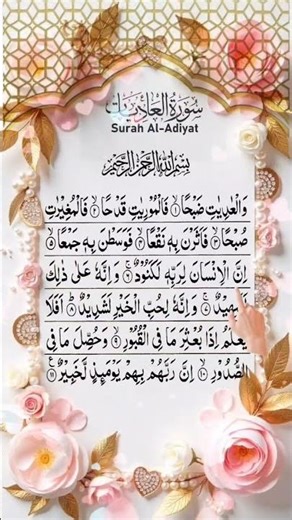 سورة العاديات
Surah Al-Adiyat
بِسْمِ اللهِ الرَّحْمٰنِ الرَّحِيْمِ
وَالْعٰدِيٰتِ ضَبْحًا ۙ۱ فَالْمُوْرِيٰتِ قَدْحًا ۙ۲ فَالْمُغِيْرٰتِ
صُبْحًا ۙ۳ فَاَثَرْنَ بِهٖ نَقْعًا ۙ۴ فَوَسَطْنَ بِهٖ جَمْعًا ۙ۵
اِنَّ الْاِنْسَانَ لِرَبِّهٖ لَكَنُوْدٌ ۚ۶ وَاِنَّهٗ عَلٰى ذٰلِكَ
لَشَهِيْدٌ ۚ۷ وَاِنَّهٗ لِحُبِّ الْخَيْرِ لَشَدِيْدٌ ؕ۸ اَفَلَا
يَعْلَمُ اِذَا بُعْثِرَ مَا فِى الْقُبُوْرِ ۙ۹ وَحُصِّلَ مَا فِى
الصُّدُوْرِ ۙ۱۰ اِنَّ رَبَّهُمْ بِهِمْ يَوْمَئِذٍ لَّخَبِيْرٌ ۱۱